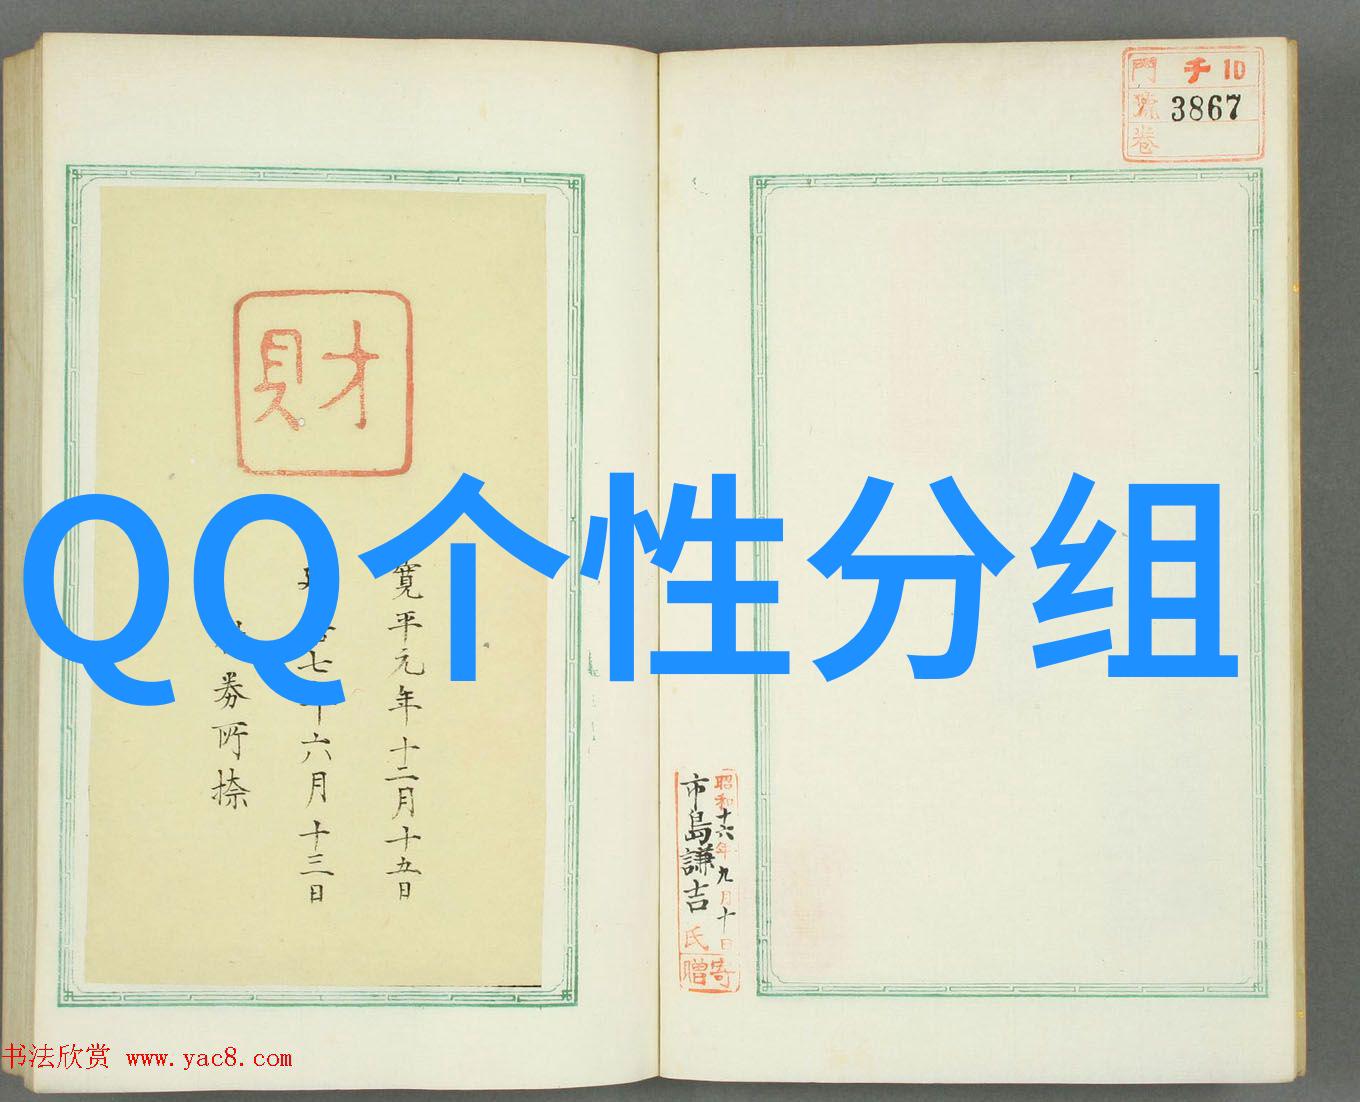 門 チ 10
號 3867
卷
財
QQ个性分组
寛平元年十二月十五日
七 年六月十三日
券所捺
昭和十六年九月十日
市島謙吉氏
寄贈
书法欣赏 www.yac8.com